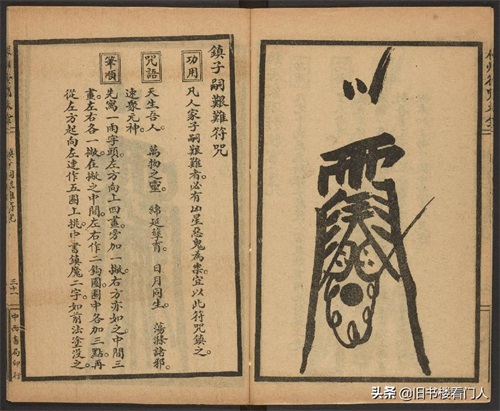 鎮子嗣艱難符咒
功用
凡人家子嗣艱難者必有凶星惡鬼為祟宜以此符咒鎮之。
咒語
天生吾人。萬物之靈。綿延 育。日月同生。蕩滌諸邪。
速聚元神。
筆順
先寫一雨字頭。左方向上四畫。旁加一撇。右方亦如之。中間三
畫。左右各一撇。在撇之中間。左右作二鉤圈。圈中各加三點。再
從左方起向左連作五圈上挑。中書鎮魔二字。如前法塗沒之。
中西書局印行
头条 @旧书楼看门人